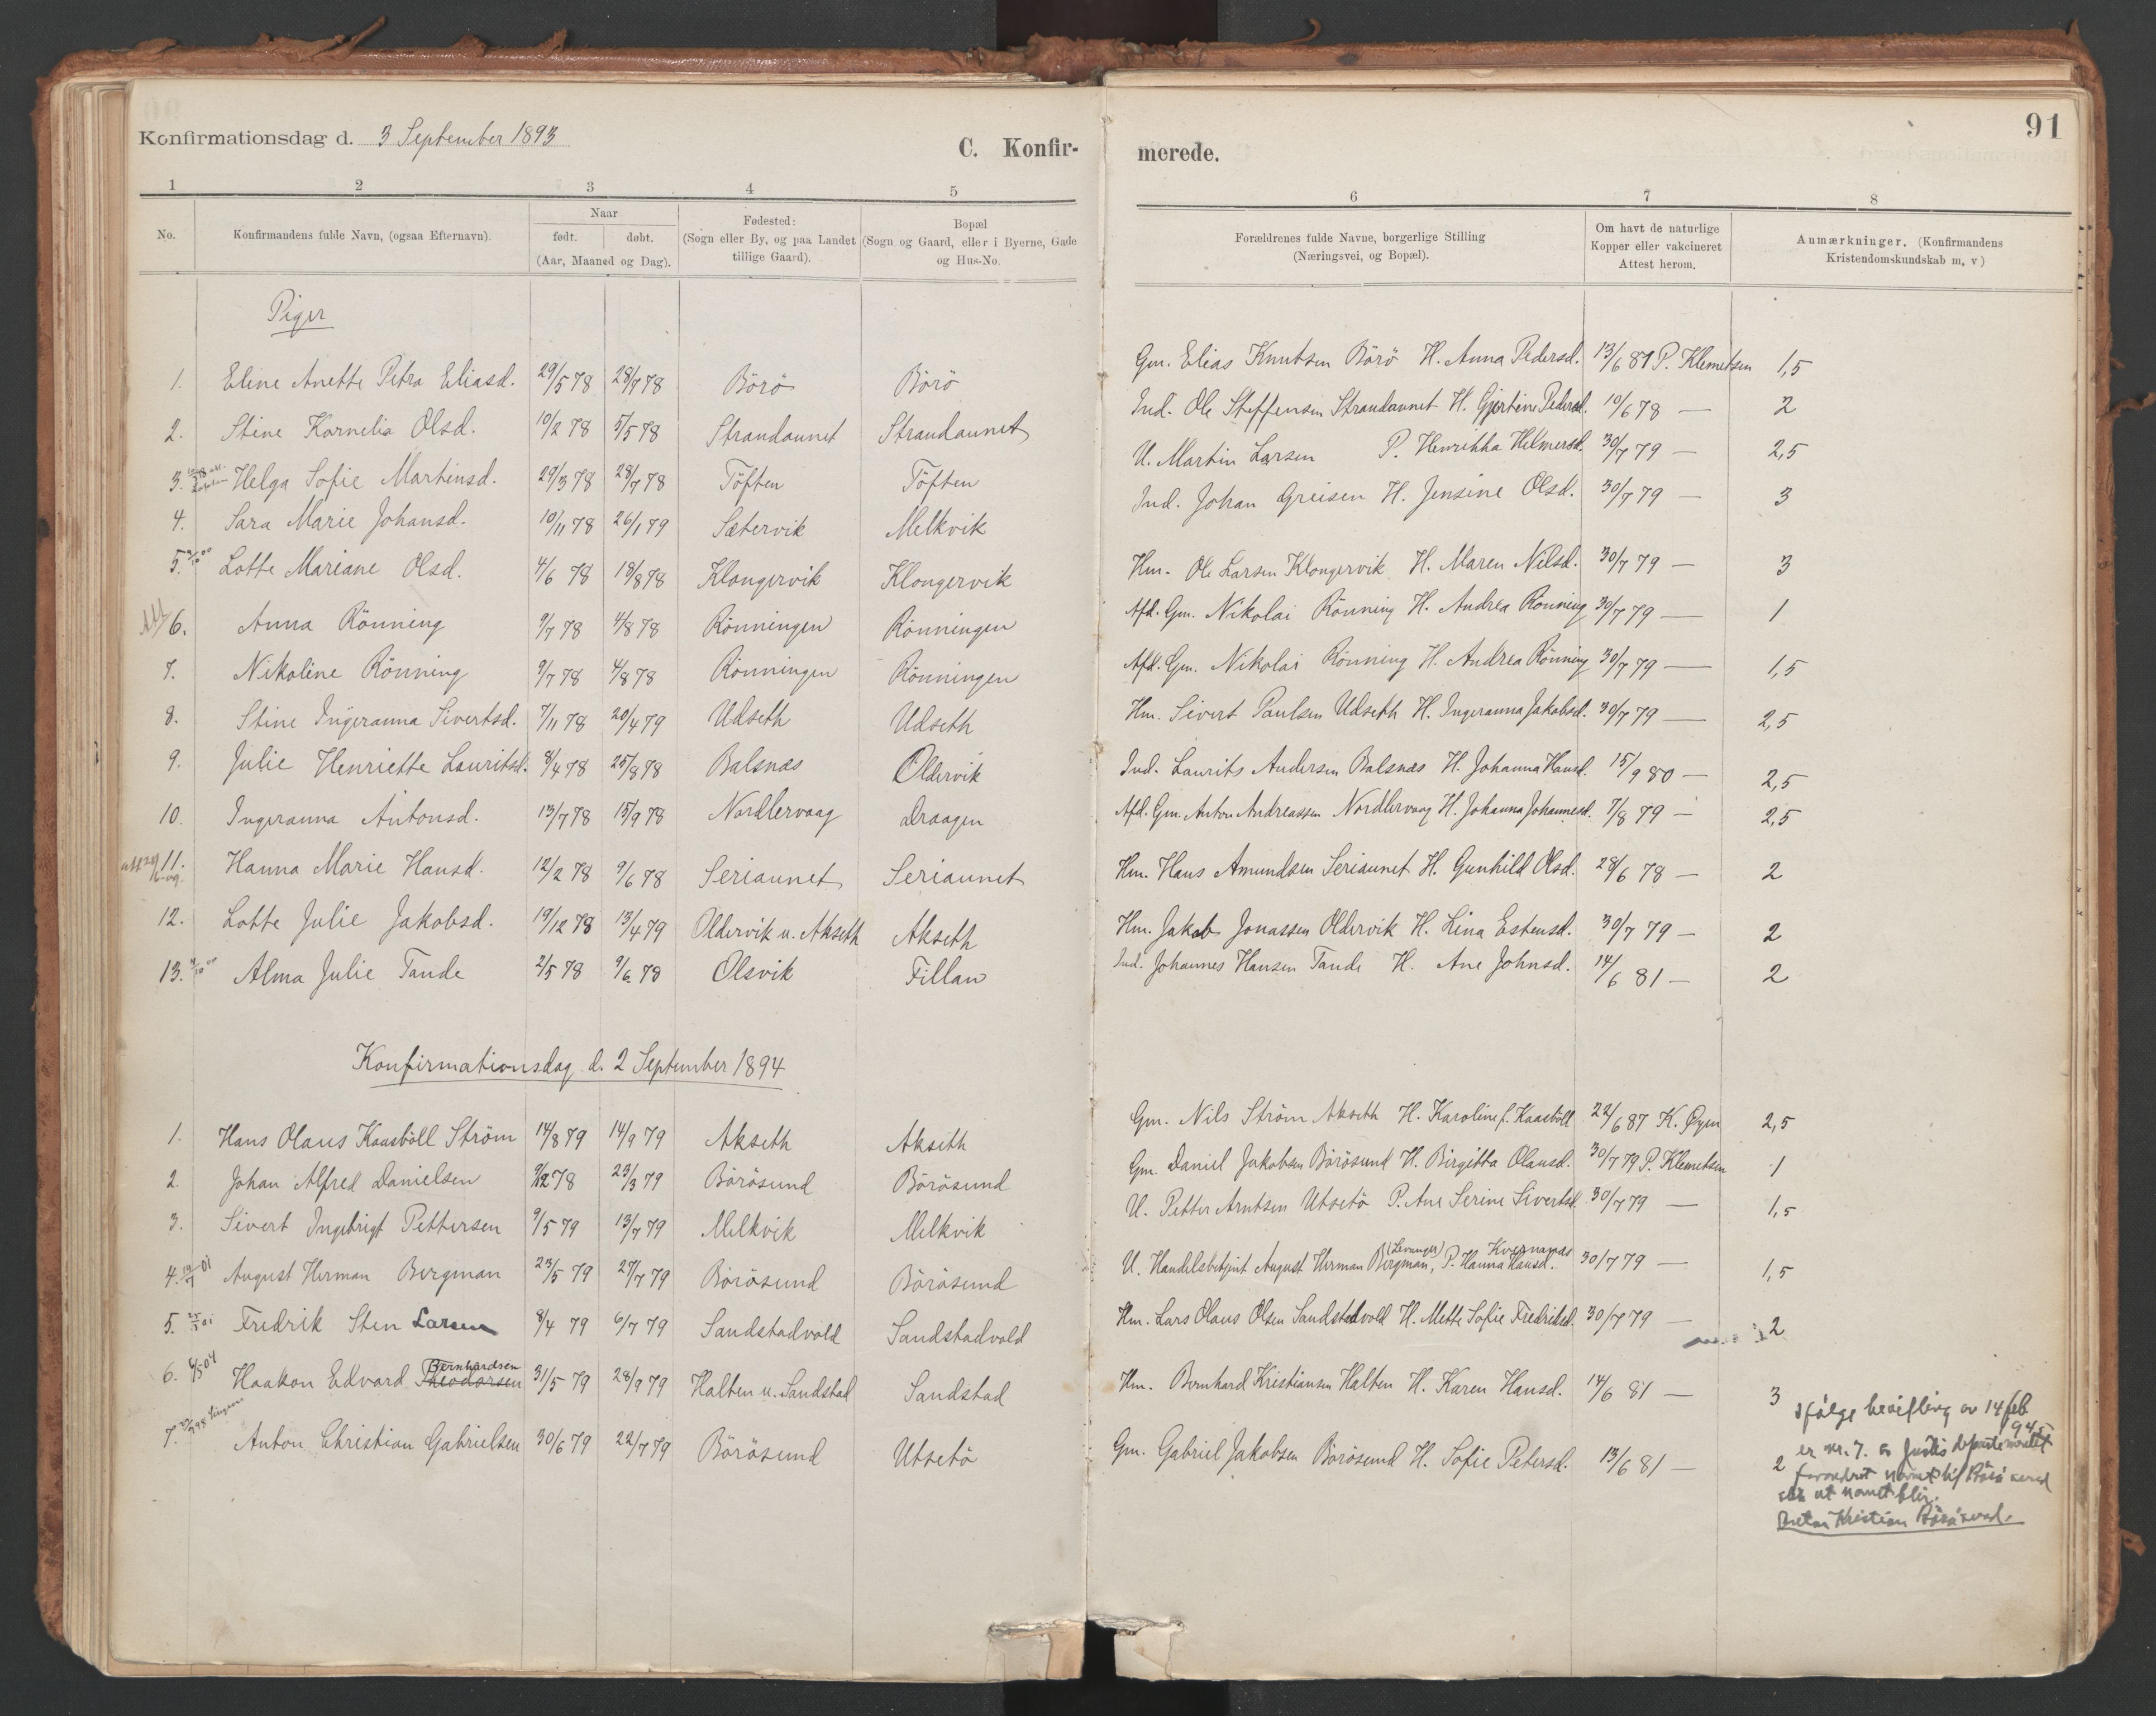 91
Konfirmationsdag d. 3 September 1893
C. Konfir-
merede.
1 2 3 4 5 6 7 8
No.
Konfirmandens fulde Navn, (ogsaa Efternavn).
Naar
født. døbt.
(Aar, Maaned og Dag).
Fødested:
(Sogn eller By, og paa Landet
tillige Gaard).
Bopæl
(Sogn og Gaard, eller i Byerne, Gade
og Hus-No.
Forældrenes fulde Navne, borgerlige Stilling
(Næringsvei, og Bopæl).
Om havt de naturlige
Kopper eller vakcineret
Attest herom.
Anmærkninger. (Konfirmandens
Kristendomskundskab m, v)
Piger
1. Eline Anette Petra Eliasd. 29/5 78 28/7 78 Börö Börö Gm. Elias Knutsen Börö H. Anna Pedersd. 13/6 81 P. Klemetsen 1,5
2. Stine Kornelia Olsd. 10/2 78 5/5 78 Strandaunet Strandaunet Ind. Ole Steffensen Strandaunet H. Gjertine Pedersd. 10/6 78 — 2
3. Helga Sofie Martinsd. 29/3 78 28/7 78 Töften Töften U. Martin Larsen P. Henrikka Helmersd. 30/7 79 — 2,5
4. Sara Marie Johansd. 10/11 78 26/1 79 Sætervik Melkvik Ind. Johan Greisen H. Jensine Olsd. 30/7 79 — 3
5. Lotte Mariane Olsd. 4/6 78 18/8 78 Klongervik Klongervik Hm. Ole Larsen Klongervik H. Maren Nilsd. 30/7 79 — 3
6. Anna Rönning 9/7 78 4/8 78 Rönningen Rönningen Afd. Gm. Nikolai Rönning H. Andrea Rönning 30/7 79 — 1
7. Nikoline Rönning 9/7 78 4/8 78 Rönningen Rönningen Afd. Gm. Nikolai Rönning H. Andrea Rönning 30/7 79 — 1,5
8. Stine Ingeranna Sivertsd. 7/11 78 20/4 79 Udseth Udseth Hm. Sivert Paulsen Udseth H. Ingeranna Jakobsd. 30/7 79 — 2,5
9. Julie Henriette Lauritsd. 8/4 78 25/8 78 Balsnæs Oldervik Ind. Laurits Andersen Balsnæs H. Johanna Hansd. 15/9 80 — 2,5
10. Ingeranna Antonsd. 13/7 78 15/9 78 Nordlervaag Draagen Afd. Gm. Anton Andreassen Nordlervaag H. Johanna Johannesd. 7/8 79 — 2,5
11. Hanna Marie Hansd. 12/2 78 9/6 78 Seriaunet Seriaunet Hm. Hans Amundsen Seriaunet H. Gunhild Olsd. 28/6 78 — 2
12. Lotte Julie Jakobsd. 19/12 78 13/4 79 Oldervik u. Akseth Akseth Hm. Jakob Jonassen Oldervik H. Lina Estensd. 30/7 79 — 2
13. Alma Julie Tande 2/5 78 9/6 78 Olsvik Fillan Ind. Johannes Hansen Tande H. Ane Johnsd. 14/6 81 — 2
Konfirmationsdag d. 2 September 1894
1. Hans Olaus Kaasböll Ström 14/8 79 14/9 79 Akseth Akseth Gm. Nils Ström Akseth H. Karoline f. Kaasböll 22/6 87 K. Øyen 2,5
2. Johan Alfred Danielsen 9/12 78 23/3 79 Börösund Börösund Gm. Daniel Jakobsen Börösund H. Birgitta Olausd. 30/7 79 P. Klemetsen 1
3. Sivert Ingebrigt Pettersen 9/5 79 13/7 79 Melkvik Melkvik U. Petter Arntsen Utsetö P. Ane Serine Sivertsd. 30/7 79 — 1,5
4. August Herman Bergman 23/5 79 27/7 79 Börösund Börösund U. Handelsbetjent August Herman Bergman, (Levanger) P. Hanna Hansd. Kvernanæs 30/7 79 — 1,5
5. Fredrik Sten Larsen 8/4 79 6/7 79 Sandstadvold Sandstadvold Hm. Lars Olaus Olsen Sandstadvold H. Mette Sofie Fredriksd. 30/7 79 — 2
6. Haakon Edvard Theodorsen Bernhardsen 31/5 79 28/9 79 Halten u. Sandstad Sandstad Hm. Bernhard Kristiansen Halten H. Karen Hansd. 14/6 81 — 3
7. Anton Christian Gabrielsen 30/6 79 22/7 79 Börösund Utsetö Gm. Gabriel Jakobsen Börösund H. Sofie Petersd. 13/6 81 — 2
ifølge bevilling av 14 feb
er nr. 7. av Justisdepartementet
forandret navnet til Börösund
slik at navnet blir.
Anton Kristian Börösund.